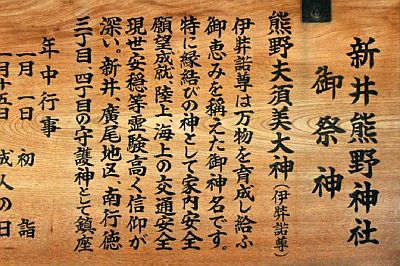 新井熊野神社
御祭神
熊野夫須美大神（伊弉諾尊）
伊弉諾尊は万物を育成し給ふ
御恵みを称えた御神名です。
特に縁結びの神として家内安全
願望成就、陸上、海上の交通安全
現世安穏等霊験高く信仰が
深い。新井、廣尾地区、南行徳
三丁目、四丁目の守護神として鎮座
年中行事
一月一日　初詣
一月十五日　成人の日